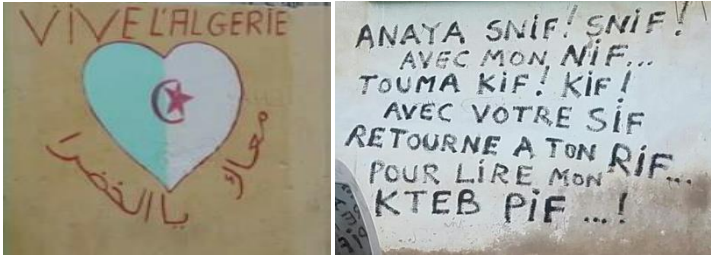 VIVE L'ALGERIE
معاك
يا الخضرا
ANAYA SNIF! SNIF!
AVEC MON NIF...
TOUMA KIF! KIF!
AVEC VOTRE SIF
RETOURNE A TON RIF...
POUR LIRE MON
KTEB PIF...!